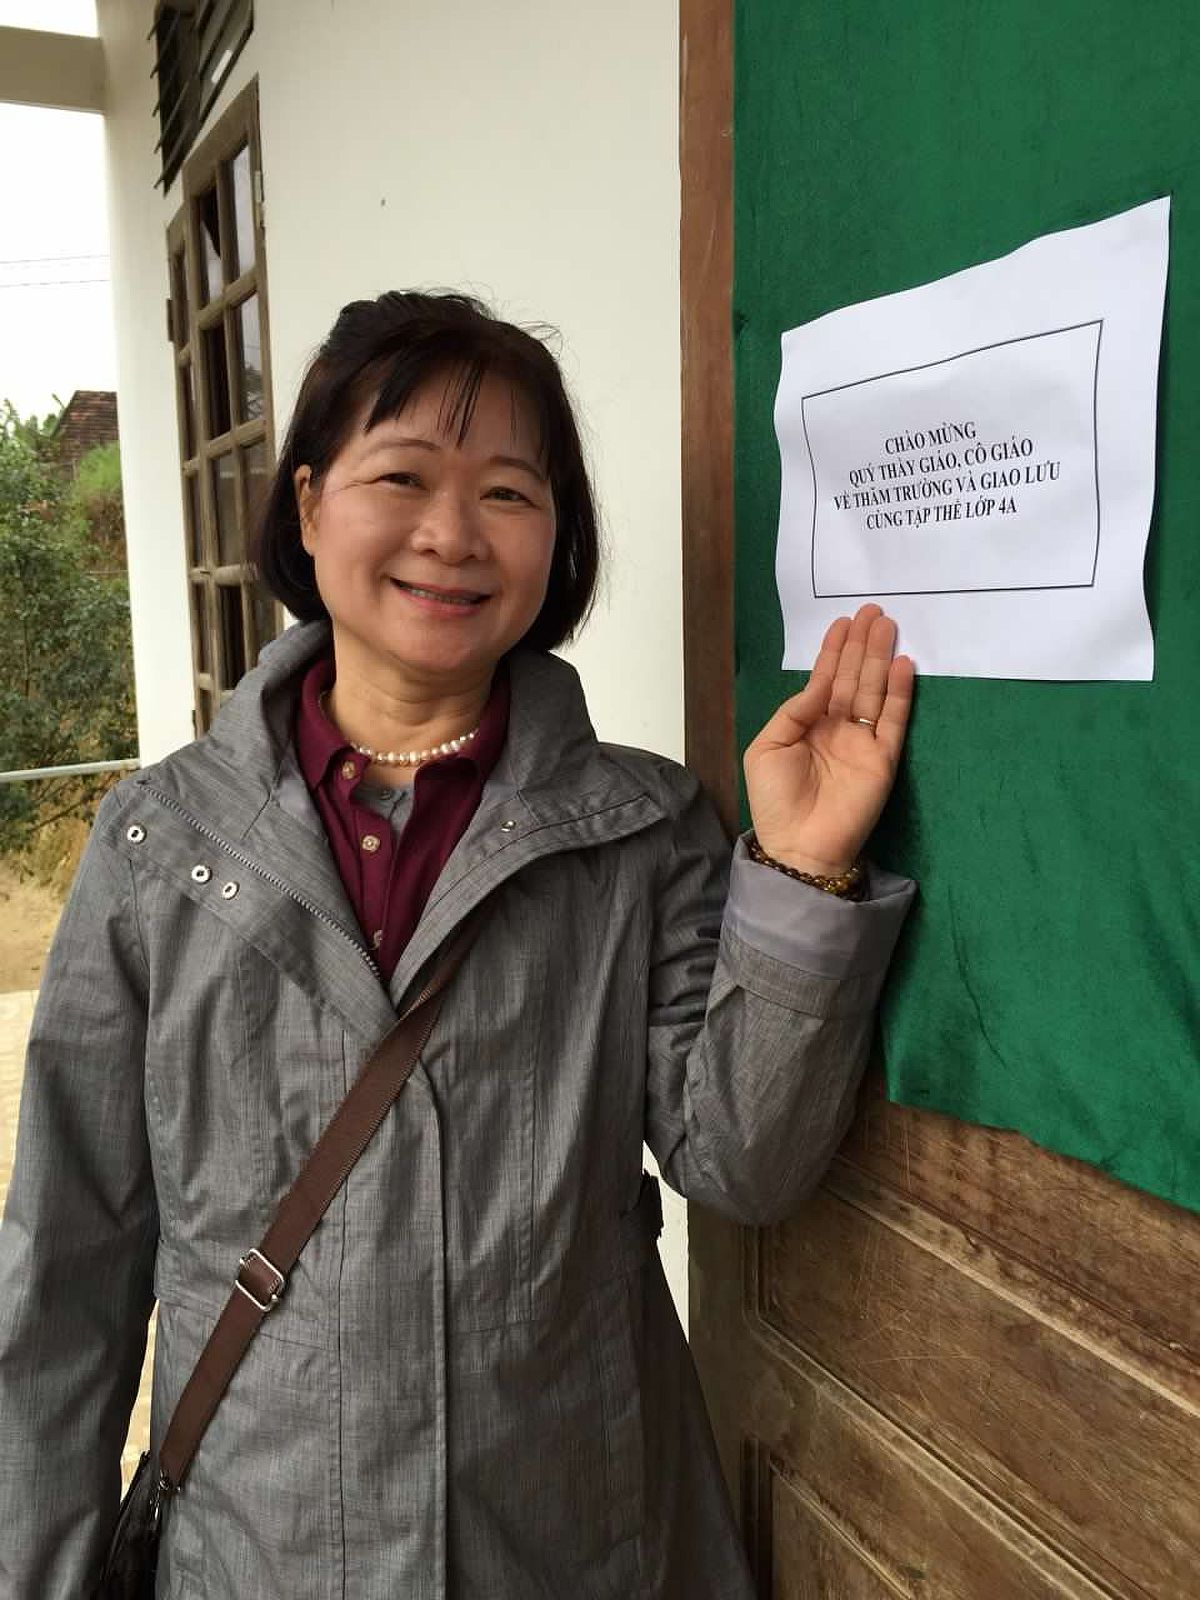 CHÀO MỪNG
QUÝ THẦY GIÁO, CÔ GIÁO
VỀ THĂM TRƯỜNG VÀ GIAO LƯU
CÙNG TẬP THỂ LỚP 4A